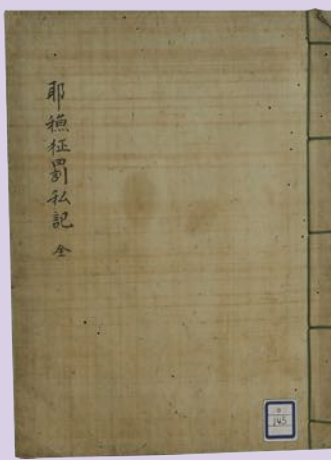 耶穌征罰私記 全
145